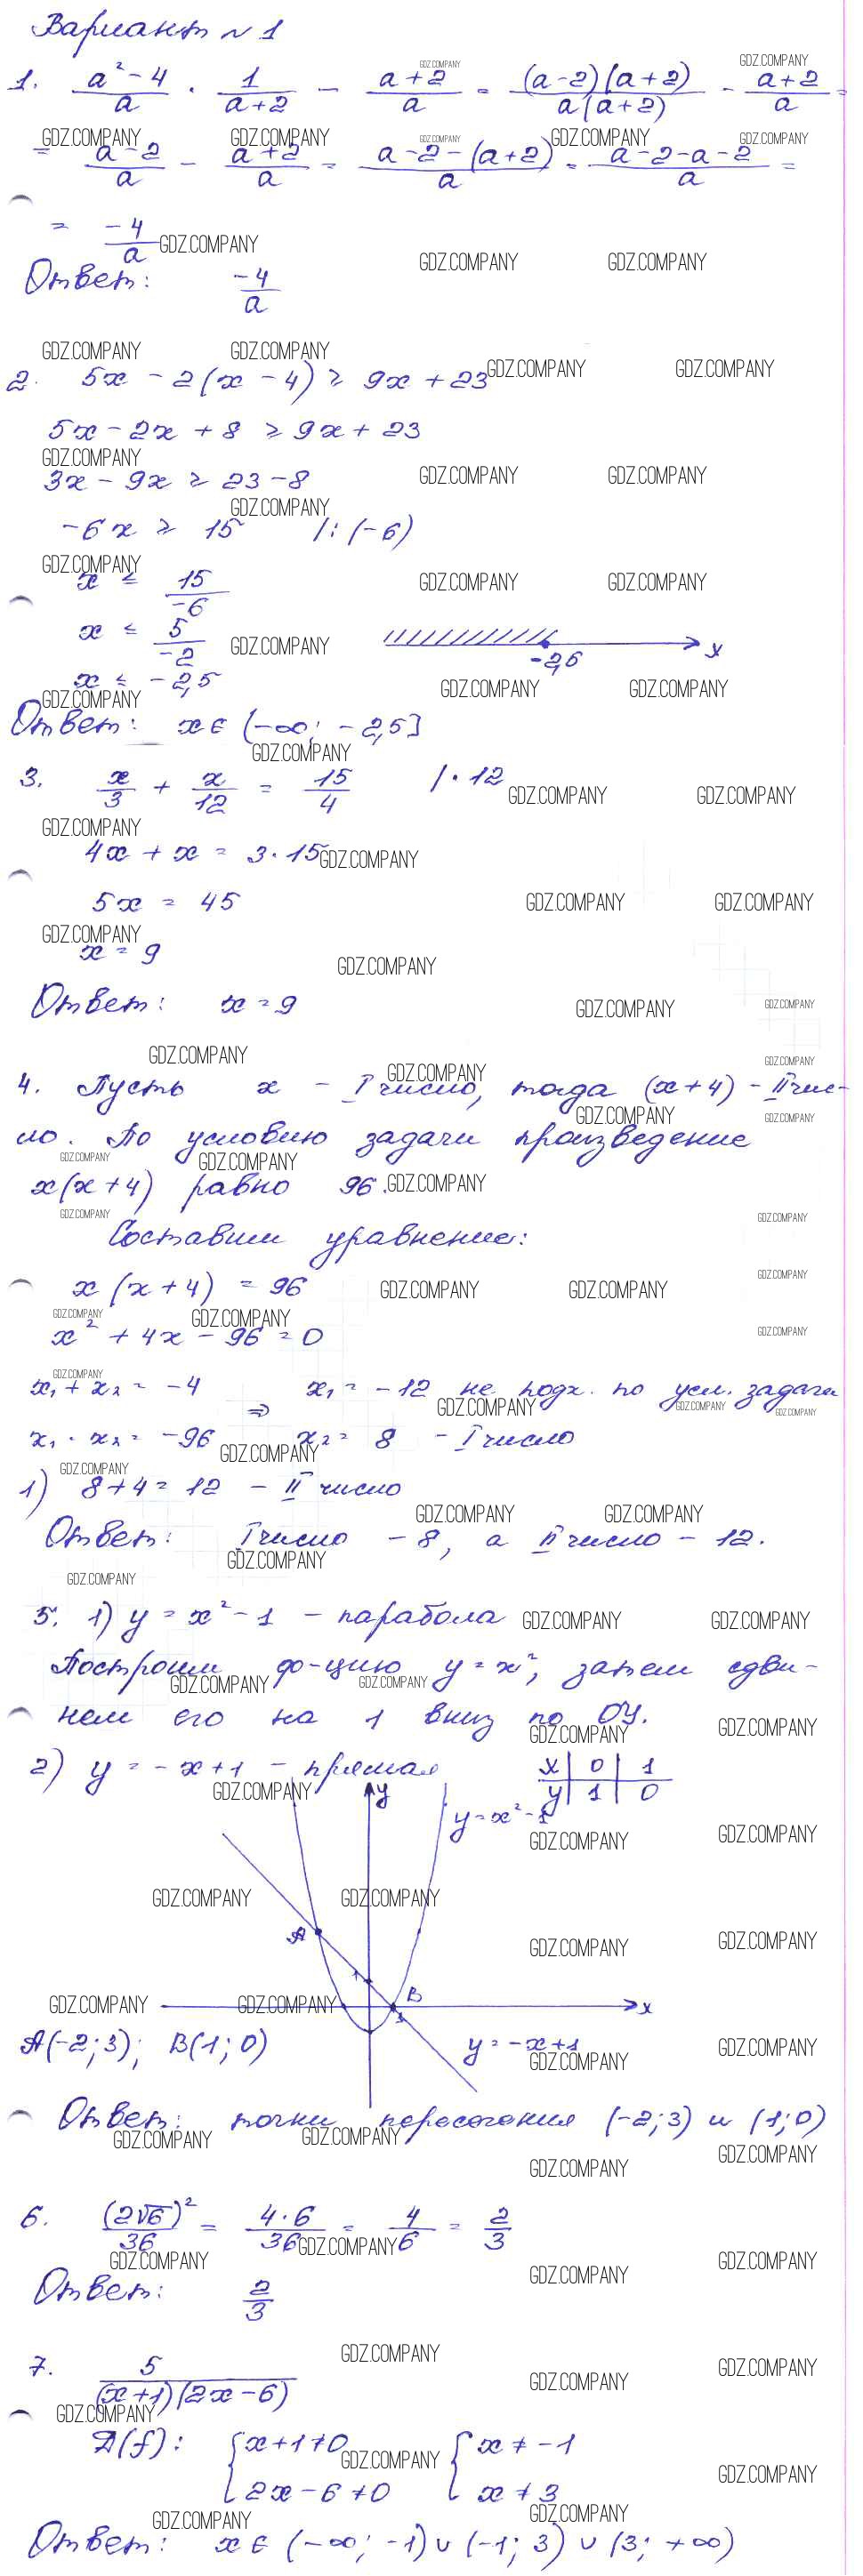 Вариант №1
1. (a² - 4)/a · 1/(a+2) - (a+2)/a = (a-2)(a+2)/(a(a+2)) - (a+2)/a =
= (a-2)/a - (a+2)/a = (a-2-(a+2))/a = (a-2-a-2)/a =
= -4/a
Ответ: -4/a
2. 5x - 2(x - 4) ≥ 9x + 23
5x - 2x + 8 ≥ 9x + 23
3x - 9x ≥ 23 - 8
-6x ≥ 15 /:(-6)
x ≤ 15/-6
x ≤ 5/-2
-2,5 x
x ≤ -2,5
Ответ: x ∈ (-∞; -2,5]
3. x/3 + x/12 = 15/4 /·12
4x + x = 3·15
5x = 45
x = 9
Ответ: x = 9
4. Пусть x - I число, тогда (x+4) - II чис-
ло. По условию задачи произведение
x(x+4) равно 96.
Составим уравнение:
x(x+4) = 96
x² + 4x - 96 = 0
x₁ + x₂ = -4 x₁ = -12 не подх. по усл. задачи
⇒
x₁ · x₂ = -96 x₂ = 8 - I число
1) 8+4 = 12 - II число
Ответ: I число - 8, а II число - 12.
5. 1) y = x² - 1 - парабола
Построим ф-цию y = x², затем сдви-
нем его на 1 вниз по OY.
2) y = -x+1 - прямая x 0 1
y 1 0
y
y = x² - 1
A
1
B
1 x
A(-2;3); B(1;0) y = -x+1
Ответ: точки пересечения (-2;3) и (1;0)
6. (2√6)²/36 = 4·6/36 = 4/6 = 2/3
Ответ: 2/3
7. 5/((x+1)(2x-6))
D(f): { x+1≠0 { x ≠ -1
2x-6≠0 x ≠ 3
Ответ: x ∈ (-∞; -1) ∪ (-1; 3) ∪ (3; +∞)
GDZ.COMPANY